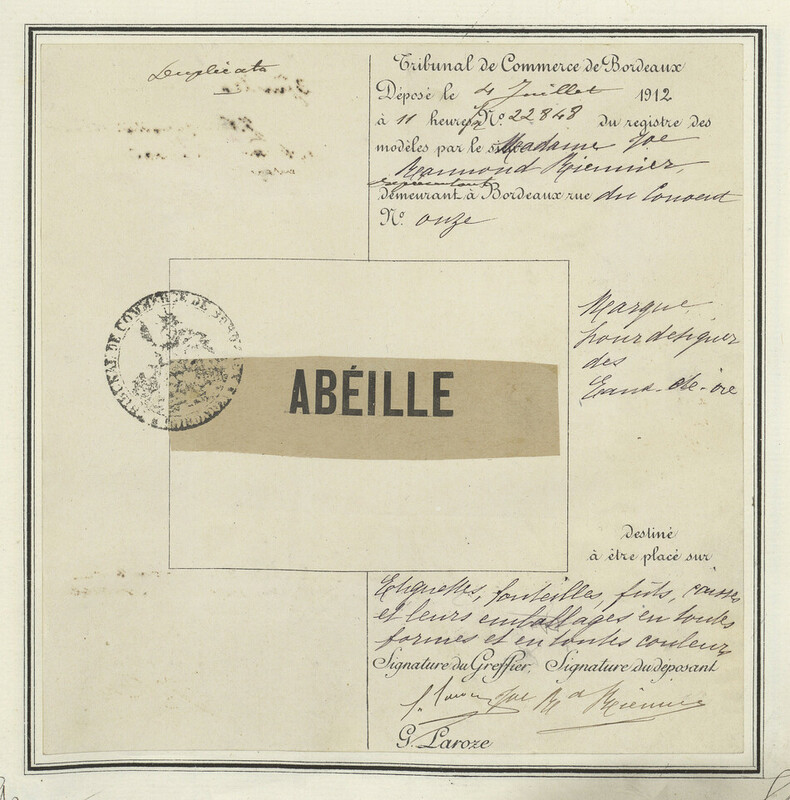 Duplicata
Tribunal de Commerce de Bordeaux
Déposé le 4 Juillet 1912
à 11 heures Nº 22848 du registre des
modèles par le Madame Vve
Raymond Riennier,
demeurant à Bordeaux rue du Couvent
Nº onze
TRIBUNAL DE COMMERCE DE BORDEAUX
ABÉILLE
Marque
pour désigner
des
Eaux-de-vie
destiné
à être placé sur
Etiquettes, bouteilles, fûts, caisses
et leurs emballages en toutes
formes et en toutes couleurs
Signature du Greffier, Signature du déposant
Vve Rd Riennier
G. Laroze